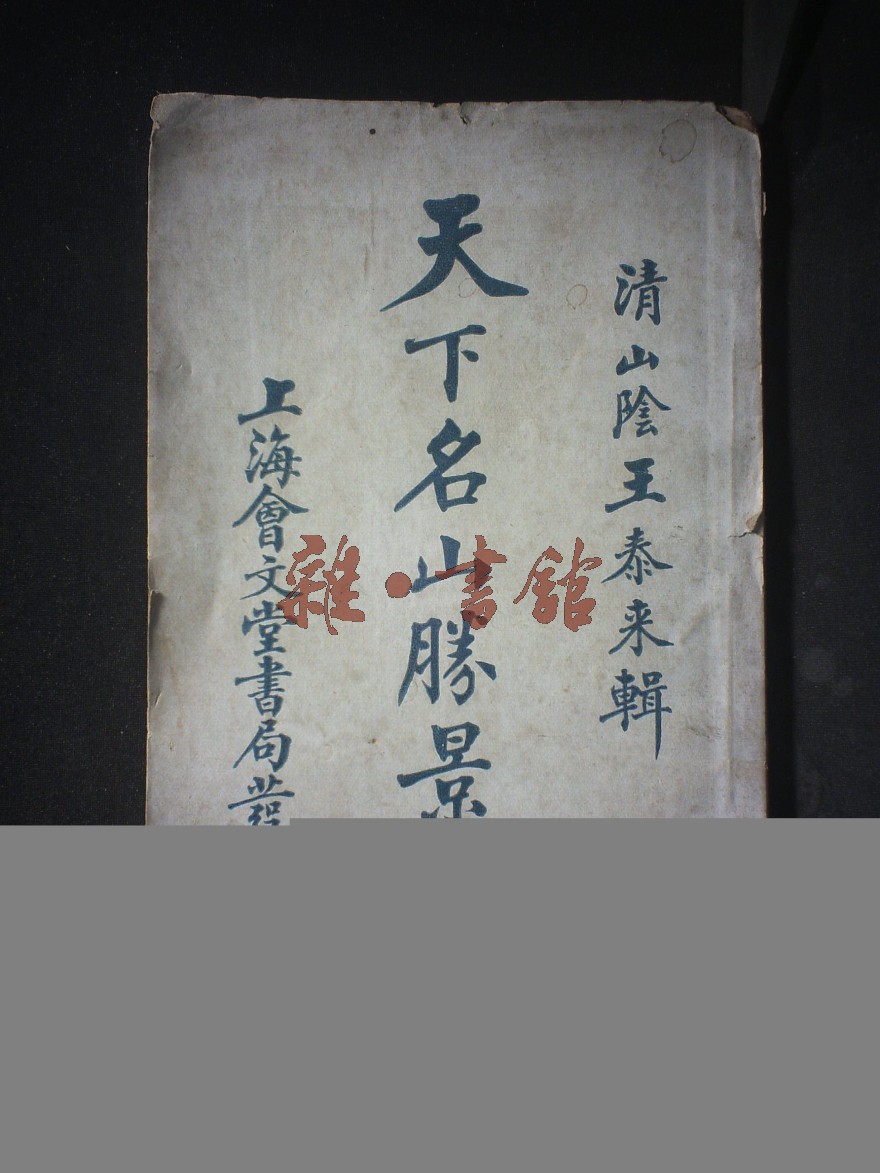 清山陰王泰来輯
天下名山勝景
上海會文堂書局
雜·書館